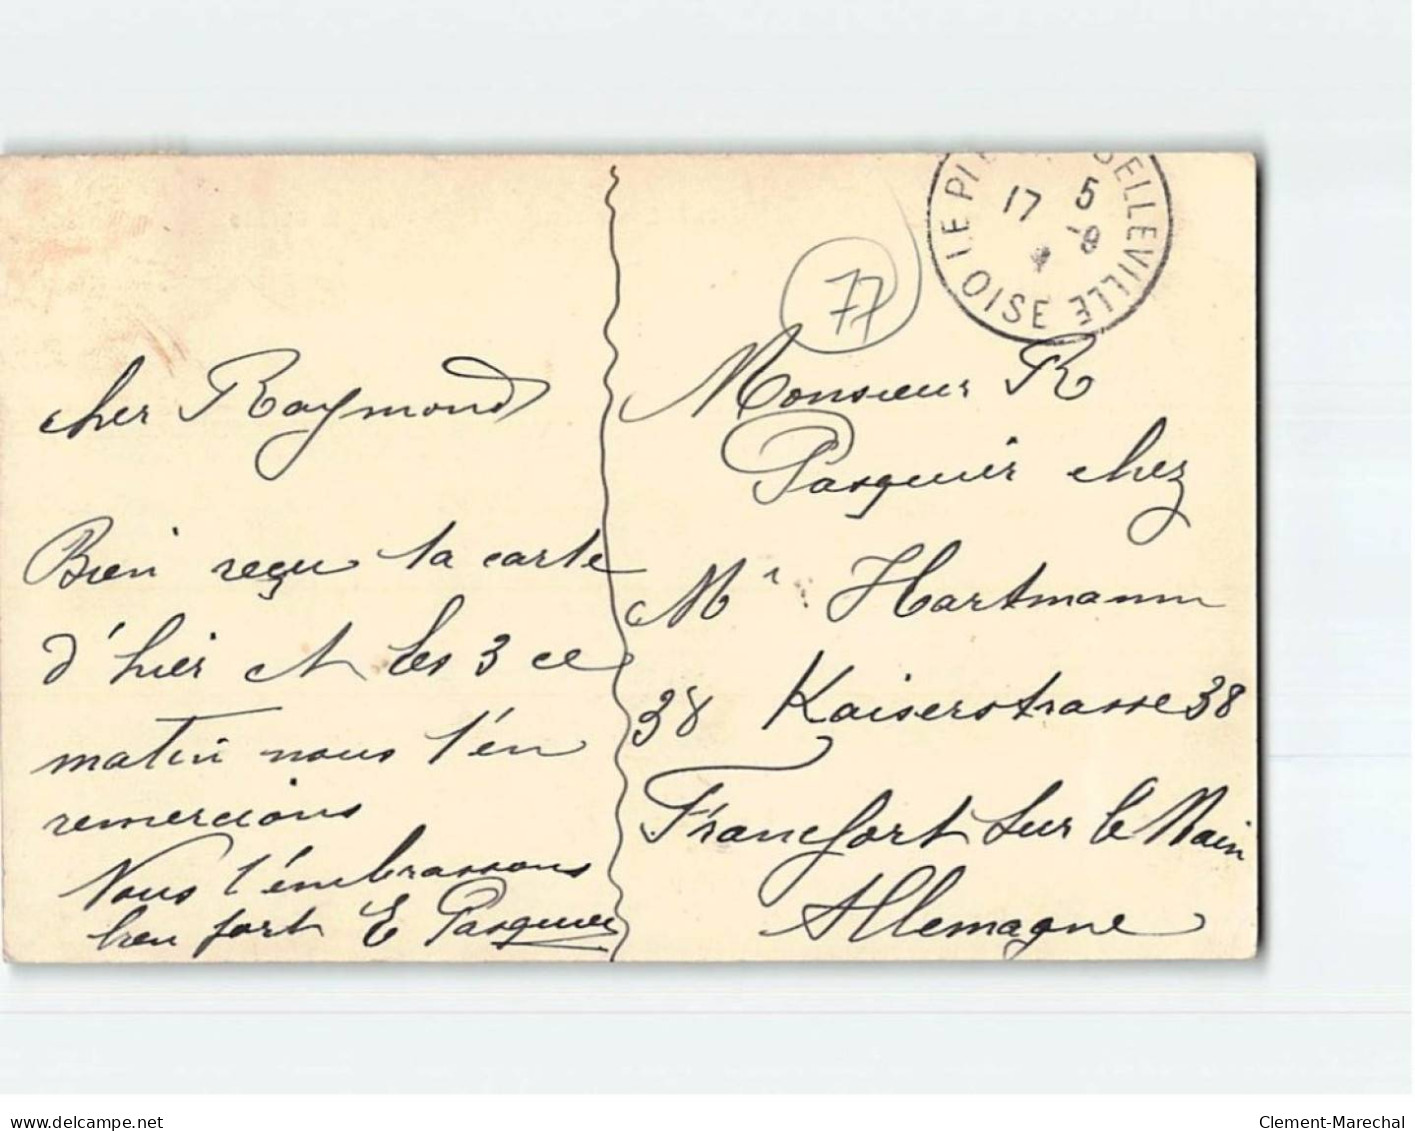 cher Raymond
Bien reçu ta carte
d'hier et les 3 ce
matin nous t'en
remercions
Nous t'embrassons
bien fort E Pasquier
LE PI BELLEVILLE
17 5
-8
OISE
77
Monsieur R
Pasquier chez
Mr Hartmann
38 Kaiserstrasse 38
Francfort sur le Main
Allemagne
www.delcampe.net
Clement-Marechal